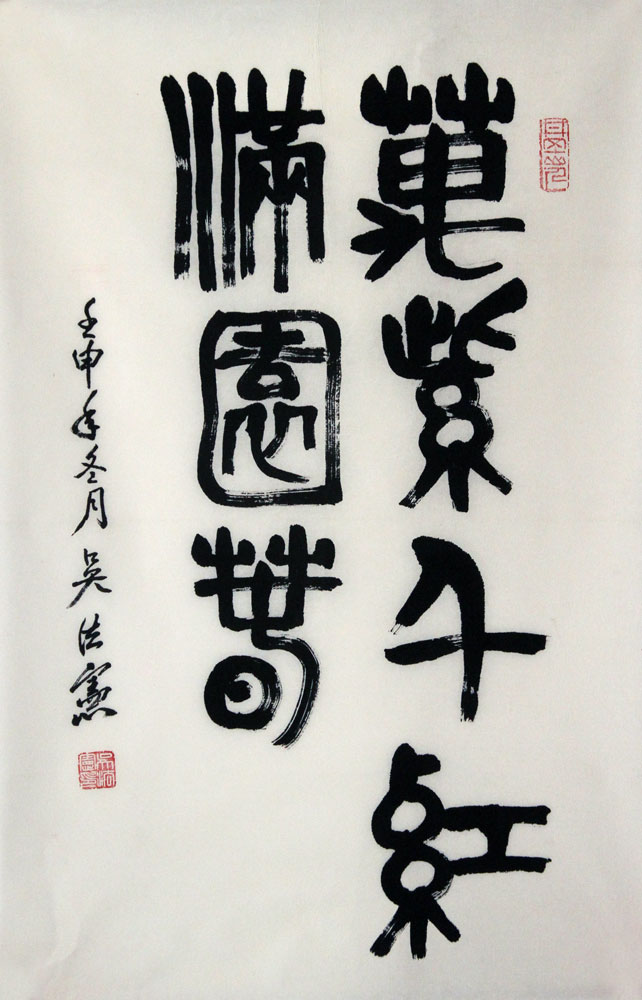 萬紫千紅
滿園春
壬申年冬月 吴法憲